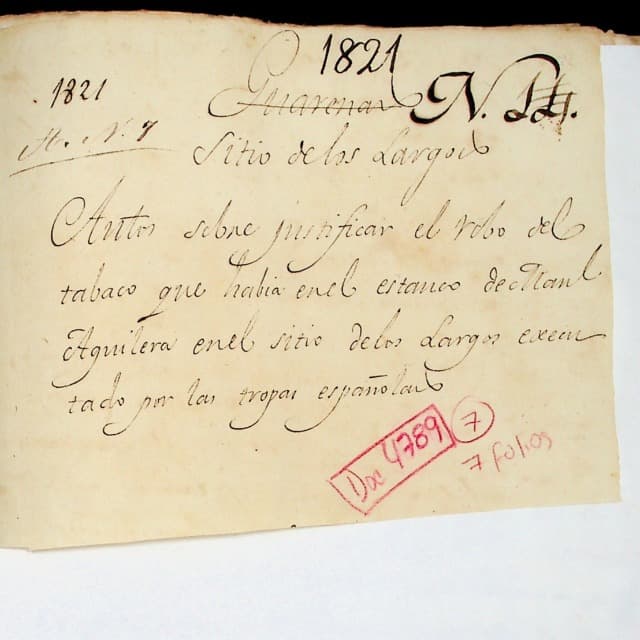 1821
1821
Guarenas N. 14.
N. 7
Sitio de los Largos
Autos sobre justificar el robo del
tabaco que habia en el estanco de Manl
Aguilera en el sitio de los Largos execu
tado por las tropas españolas
Doc 4789 7
7 folios